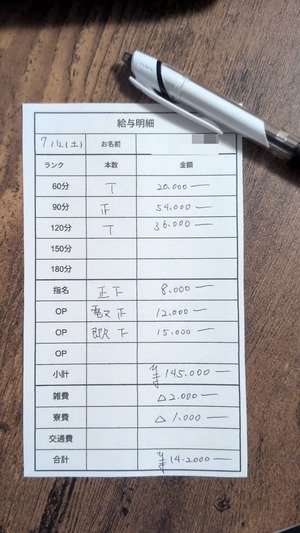 給与明細
7/12(土) お名前
ランク 本数 金額
60分 T 20.000—
90分 正 54.000—
120分 T 36.000—
150分
180分
指名 正下 8.000—
OP 正 12.000—
OP 下 15.000—
OP
小計 145.000—
雑費 △2.000—
寮費 △1.000—
交通費
合計 14.2000—